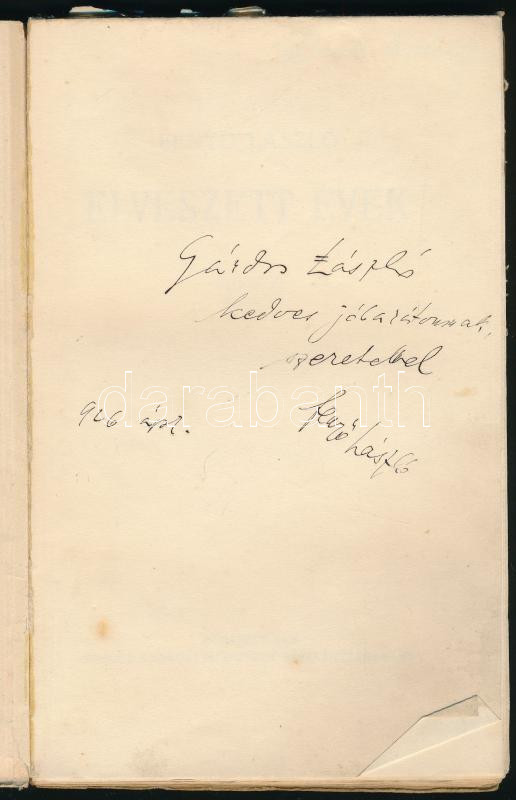 FENYŐ LÁSZLÓ
ELVESZETT ÉVEK
Gárdos László
kedves jóbarátomnak,
szeretettel
926 ápr.
Fenyő László
darabanth